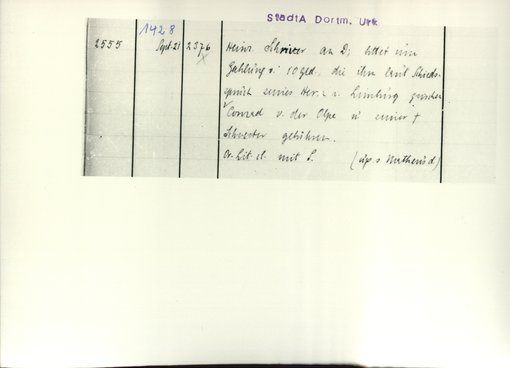 StadtA Dortm. Urk.
1428
2555 Sept. 21 2376 Heinr. Schriver an D; bittet um
Zahlung v. 10 Geld., die ihm laut Schieds-
spruch seines Herrn v. Limburg zwischen
Conrad v. der Olpe u seiner †
Schwester gebühren.
Or. Lit. cl. mit S. (ips. s. Mathei d)